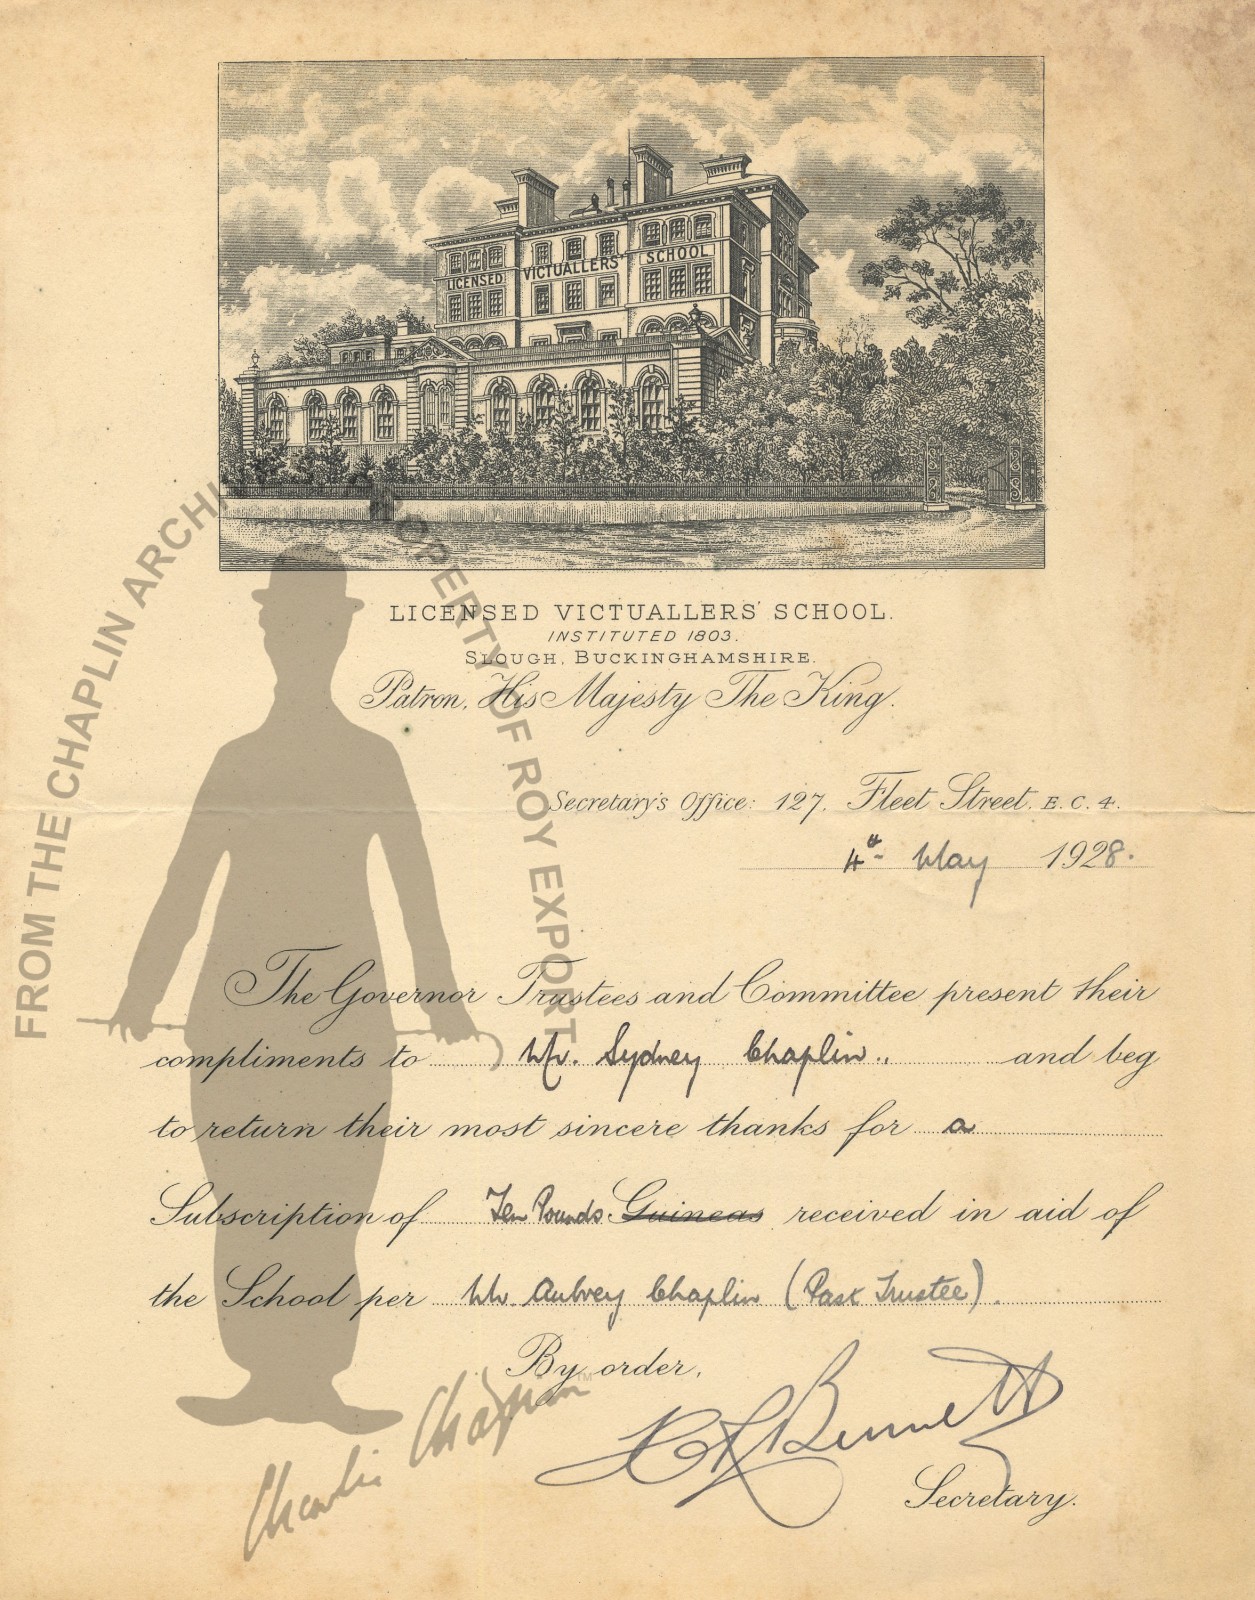 LICENSED VICTUALLERS' SCHOOL
LICENSED VICTUALLERS' SCHOOL.
INSTITUTED 1803.
SLOUGH, BUCKINGHAMSHIRE.
Patron, His Majesty The King.
Secretary's Office: 127, Fleet Street, E.C.4.
4th May 1928.
The Governor Trustees and Committee present their
compliments to Mr. Sydney Chaplin.. and beg
to return their most sincere thanks for a
Subscription of Ten Pounds Guineas received in aid of
the School per Mr. Aubrey Chaplin (Past Trustee).
By order,
Bennett
Secretary.
FROM THE CHAPLIN ARCHI
PROPERTY OF ROY EXPORT
Charlie Chaplin™